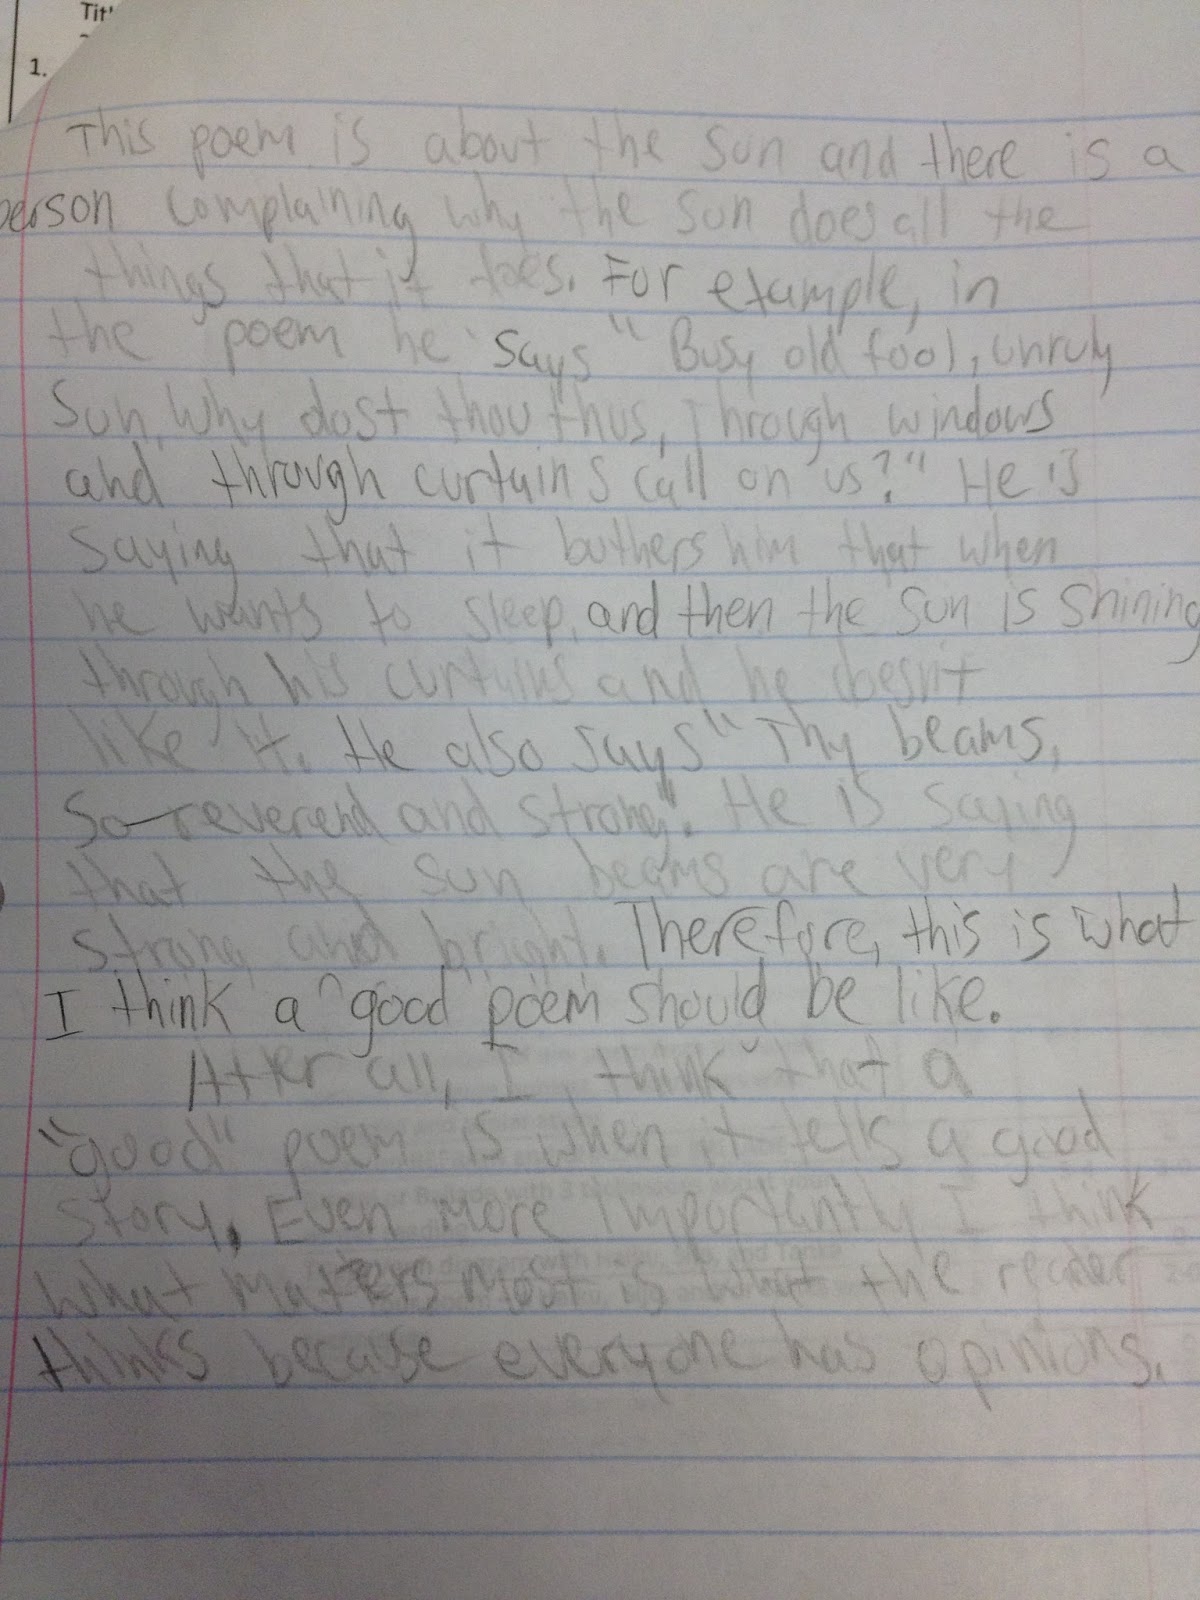 Tit
1.
This poem is about the sun and there is a
person complaining why the sun does all the
things that it does. For example, in
the poem he says "Busy old fool, unruly
Sun, Why dost thou thus, Through windows
and through curtains call on us?" He is
saying that it bothers him that when
he wants to sleep, and then the sun is shining
through his curtains and he doesn't
like it. He also says "Thy beams,
So reverend and strong". He is saying
that the sun beams are very
strong and bright. Therefore, this is what
I think a good poem should be like.
After all, I think that a
"good" poem is when it tells a good
story. Even more importantly I think
what matters most is what the reader
thinks because everyone has opinions.